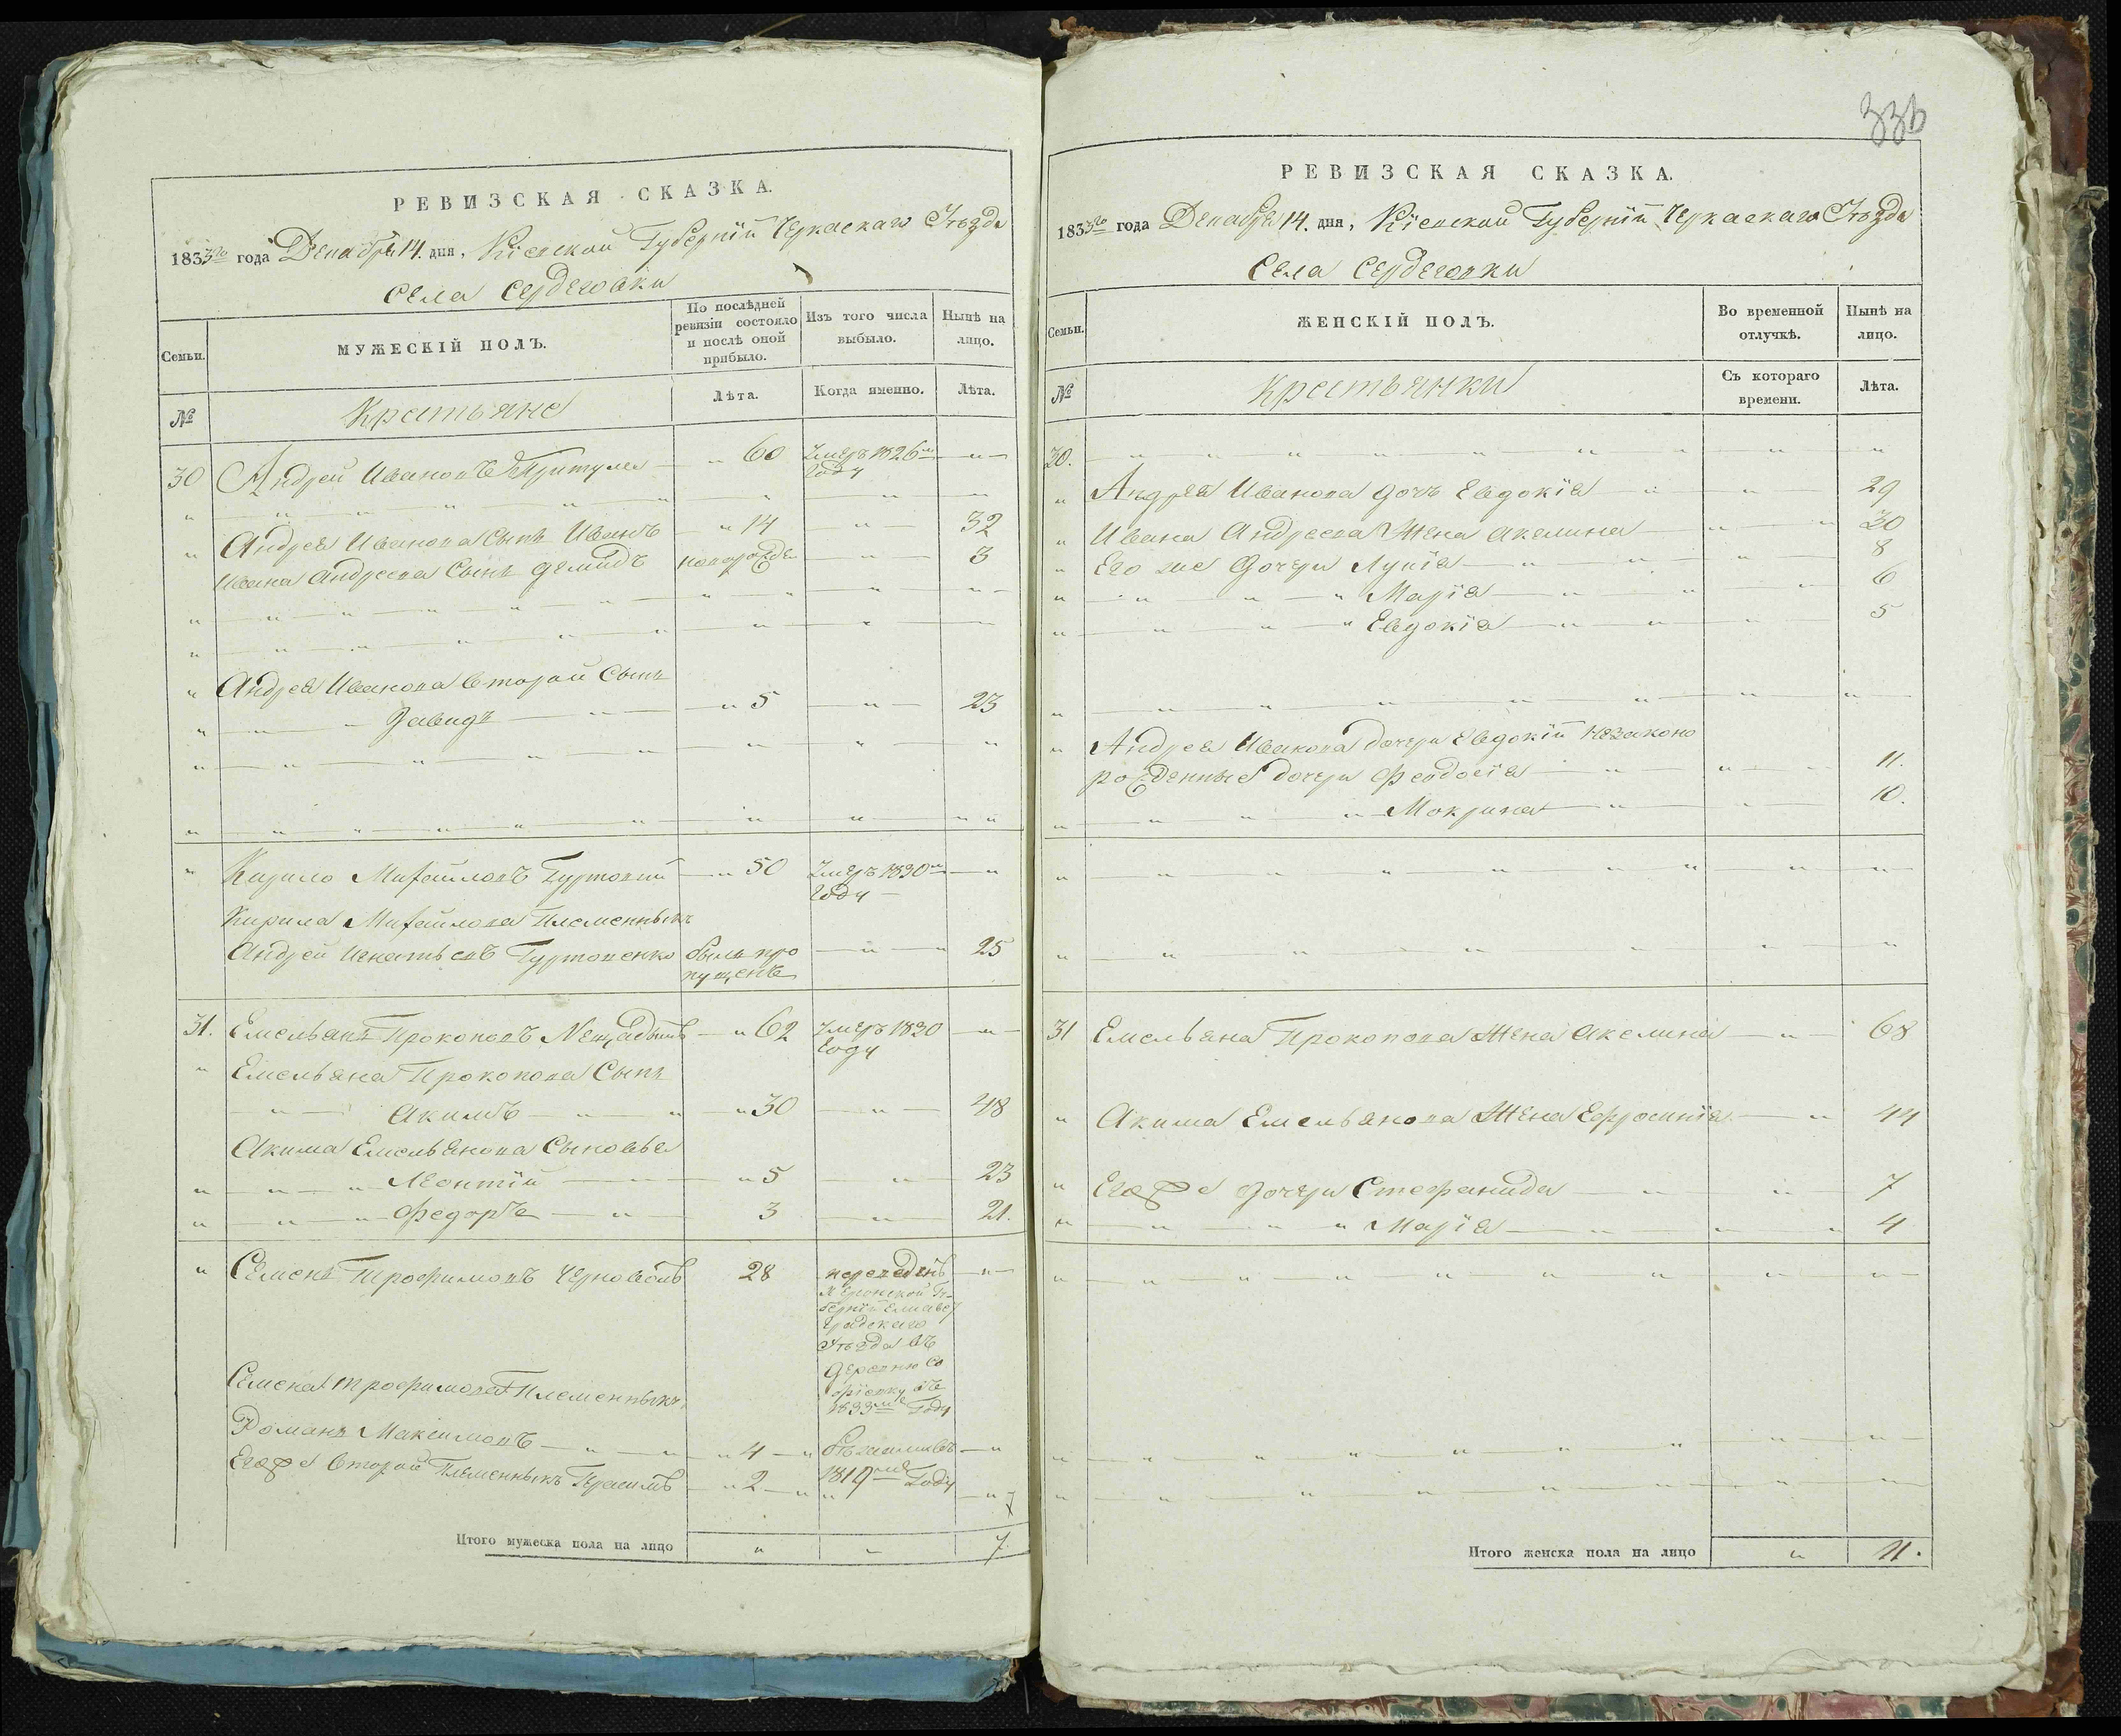 РЕВИЗСКАЯ СКАЗКА.
1833го года Декабря 14. дня, Кіевской Губерніи Черкаскаго Уѣзда
Села Сердеговки
Семьи.
МУЖЕСКІЙ ПОЛЪ.
По послѣдней ревизіи состояло и послѣ оной прибыло.
Изъ того числа выбыло.
Нынѣ на лицо.
№
Крестьяне
Лѣта.
Когда именно.
Лѣта.
30 Андрей Ивановъ Притула — " 60 Умеръ 1826го — " —
Году
" Андрея Иванова Сынъ Иванъ — " 14 — " — 32
Ивана Андреева Сынъ Демидъ новорожден — " — 3
" Андрея Иванова второй Сынъ
" — " — Давидъ — " — " 5 — " — 23
" Кирило Михайловъ Гуртовий — " 50 Умеръ 1830го — "
Году —
Кирила Михайлова Племенныкъ
Андрей Игнатьевъ Гуртовенко былъ про — " — " 25
пущенъ
31. Емельянъ Прокоповъ Нещадымъ — " 62 Умеръ 1830 — " —
Году
" Емельяна Прокопова Сынъ
— " — Акимъ — " — " — " 30 — " — 48
Акима Емельянова Сыновья
" — " — " Леонтій — — " 5 — " — 23
" — " — " Федоръ — " — 3 — " — 21.
" Семенъ Трофимовъ Чорноволъ 28 переведенъ — " —
Херсонской Гу-
берніи Елисавет
градскаго
Уѣзда въ
деревню Со
фіевку въ
1833мъ Году
Семена Трофимова Племенныкъ
Романъ Максимовъ — " — " — " 4 — " бѣжали въ — "
Его же второй Племенныкъ Герасимъ — " 2 — " 1819мъ Году — "
Итого мужеска пола на лицо " " 7.
336
РЕВИЗСКАЯ СКАЗКА.
1833го года Декабря 14. дня, Кіевской Губерніи Черкаскаго Уѣзда
Села Сердеговки
Семьи.
ЖЕНСКІЙ ПОЛЪ.
Во временной отлучкѣ.
Нынѣ на лицо.
№
Крестьянки
Съ котораго времени.
Лѣта.
30. — " — " — " — "
" Андрея Иванова дочь Евдокія — " — " 29
" Ивана Андреева Жена Акелина — " — " 30
" Его же Дочери Лукія — " — " — " 8
" — " — " — " Марія — " — " — " 6
" — " — " — " Евдокія — " — " — " 5
" Андрея Иванова дочери Евдокіи Незаконо
рожденные дочери Феодосія — " — " — " 11.
" — " — " — Мокрина — " — " 10.
31 Емельяна Прокопова Жена Акелина — " — 68
" Акима Емельянова Жена Ефросинія — " 44
" Его же дочери Стефанида — " — " — 7
" — " — " — " Марія — " — " — " 4
" " " " " " " " "
Итого женска пола на лицо " 11.